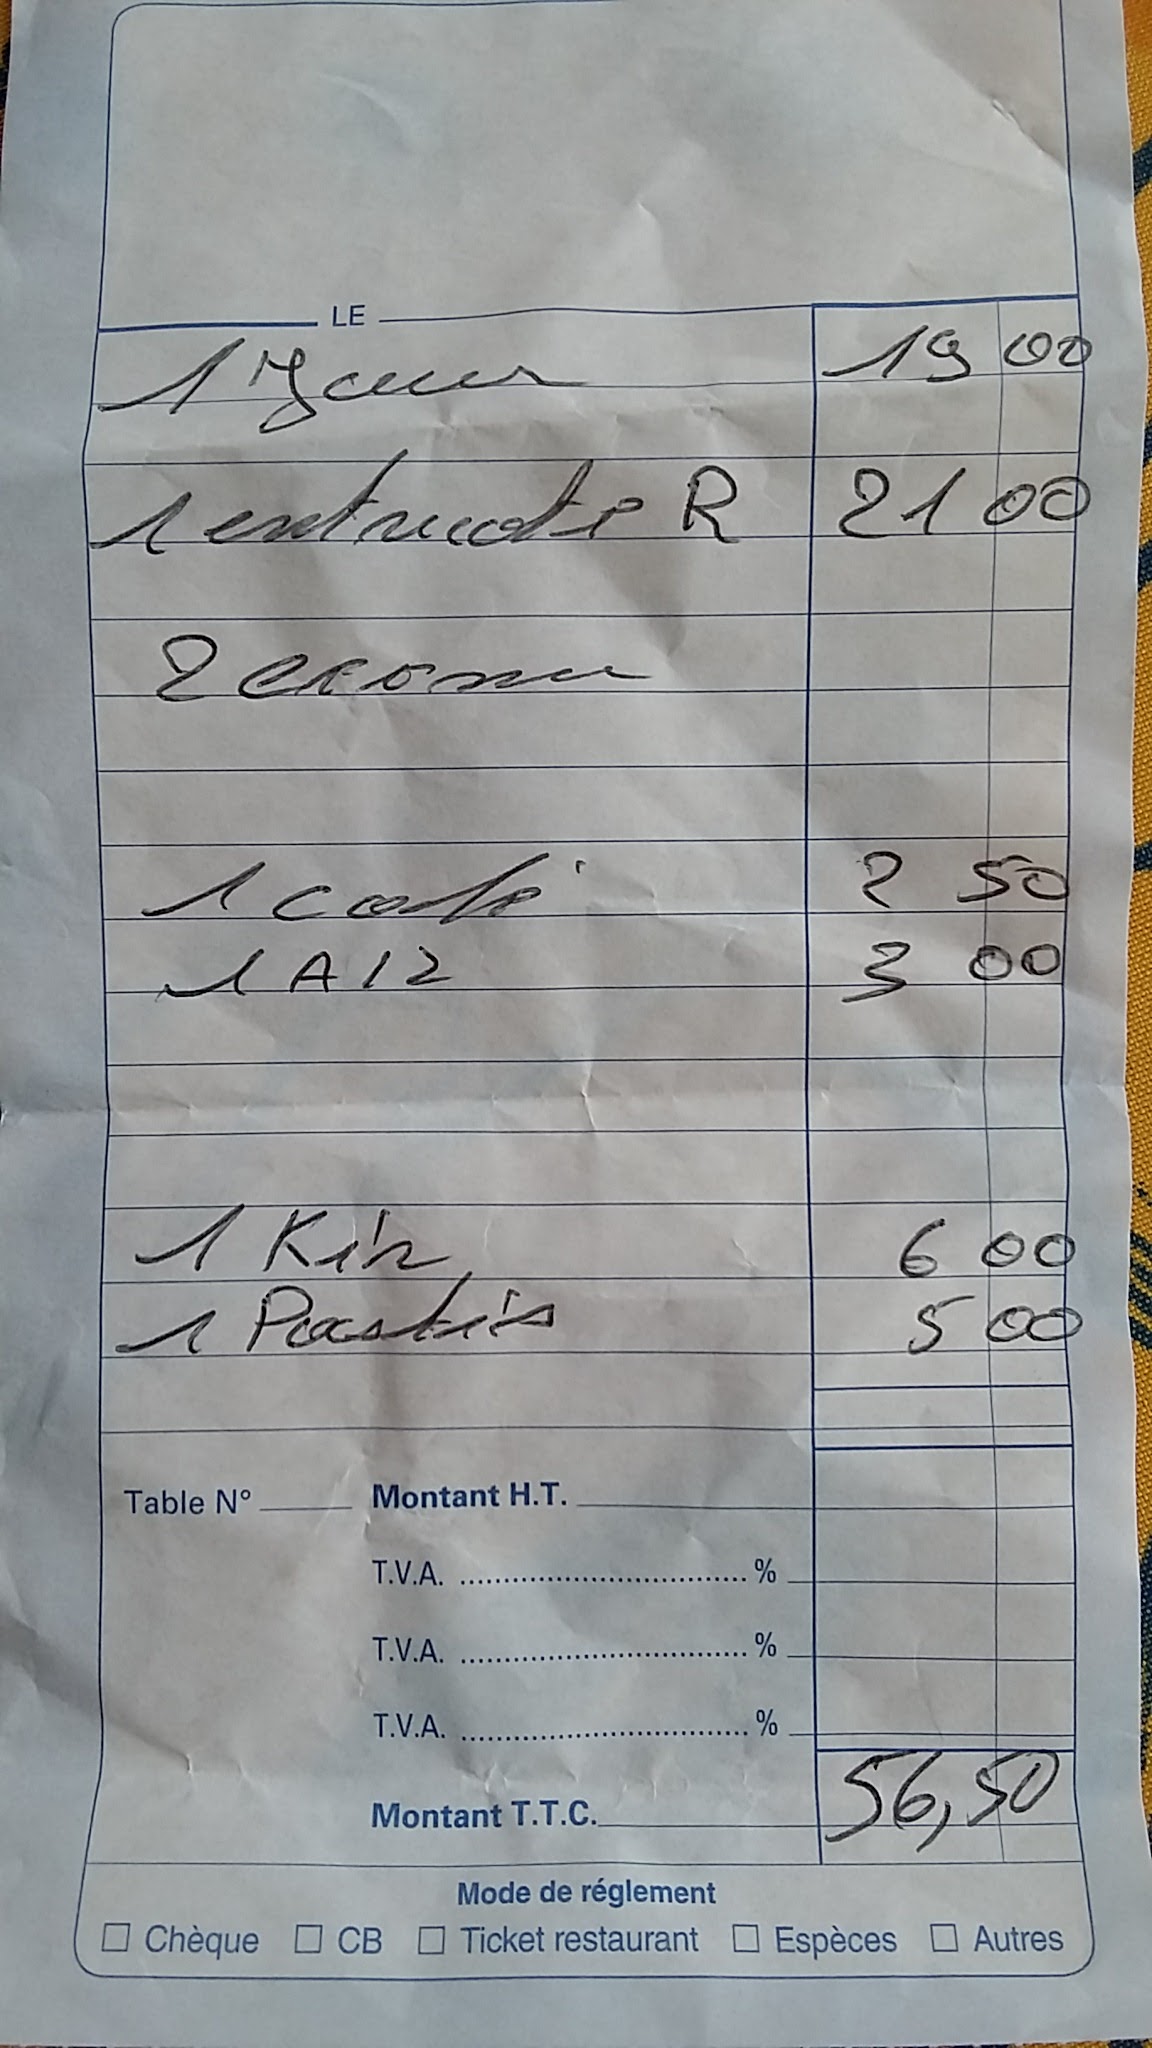 LE
1 19 00
1 entrecote R 21 00
2
1 café 2 50
1 A 12 3 00
1 Kir 6 00
1 Pastis 5 00
Table N° Montant H.T.
T.V.A. %
T.V.A. %
T.V.A. %
Montant T.T.C. 56,50
Mode de réglement
Chèque CB Ticket restaurant Espèces Autres